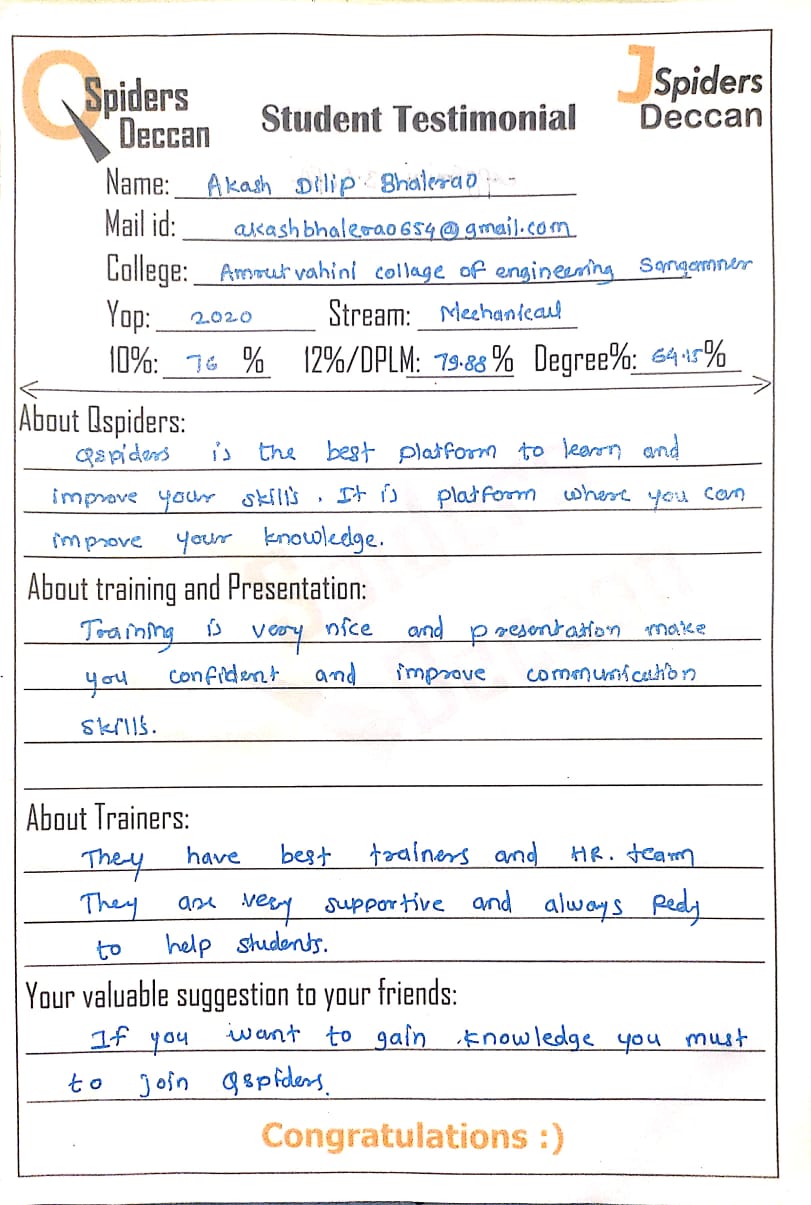 QSpiders Deccan
Student Testimonial
JSpiders Deccan
Name: Akash Dilip Bhalerao
Mail id: akashbhalerao654@gmail.com
College: Amrutvahini collage of engineering Sangamner
Yop: 2020 Stream: Mechanical
10%: 76 % 12%/DPLM: 79.88 % Degree%: 64.15%
About Qspiders:
Qspiders is the best platform to learn and
improve your skills. It is platform where you can
improve your knowledge.
About training and Presentation:
Training is very nice and presentation make
you confident and improve communication
skills.
About Trainers:
They have best trainers and HR. team
They are very supportive and always Redy
to help students.
Your valuable suggestion to your friends:
If you want to gain knowledge you must
to join Qspiders.
Congratulations :)